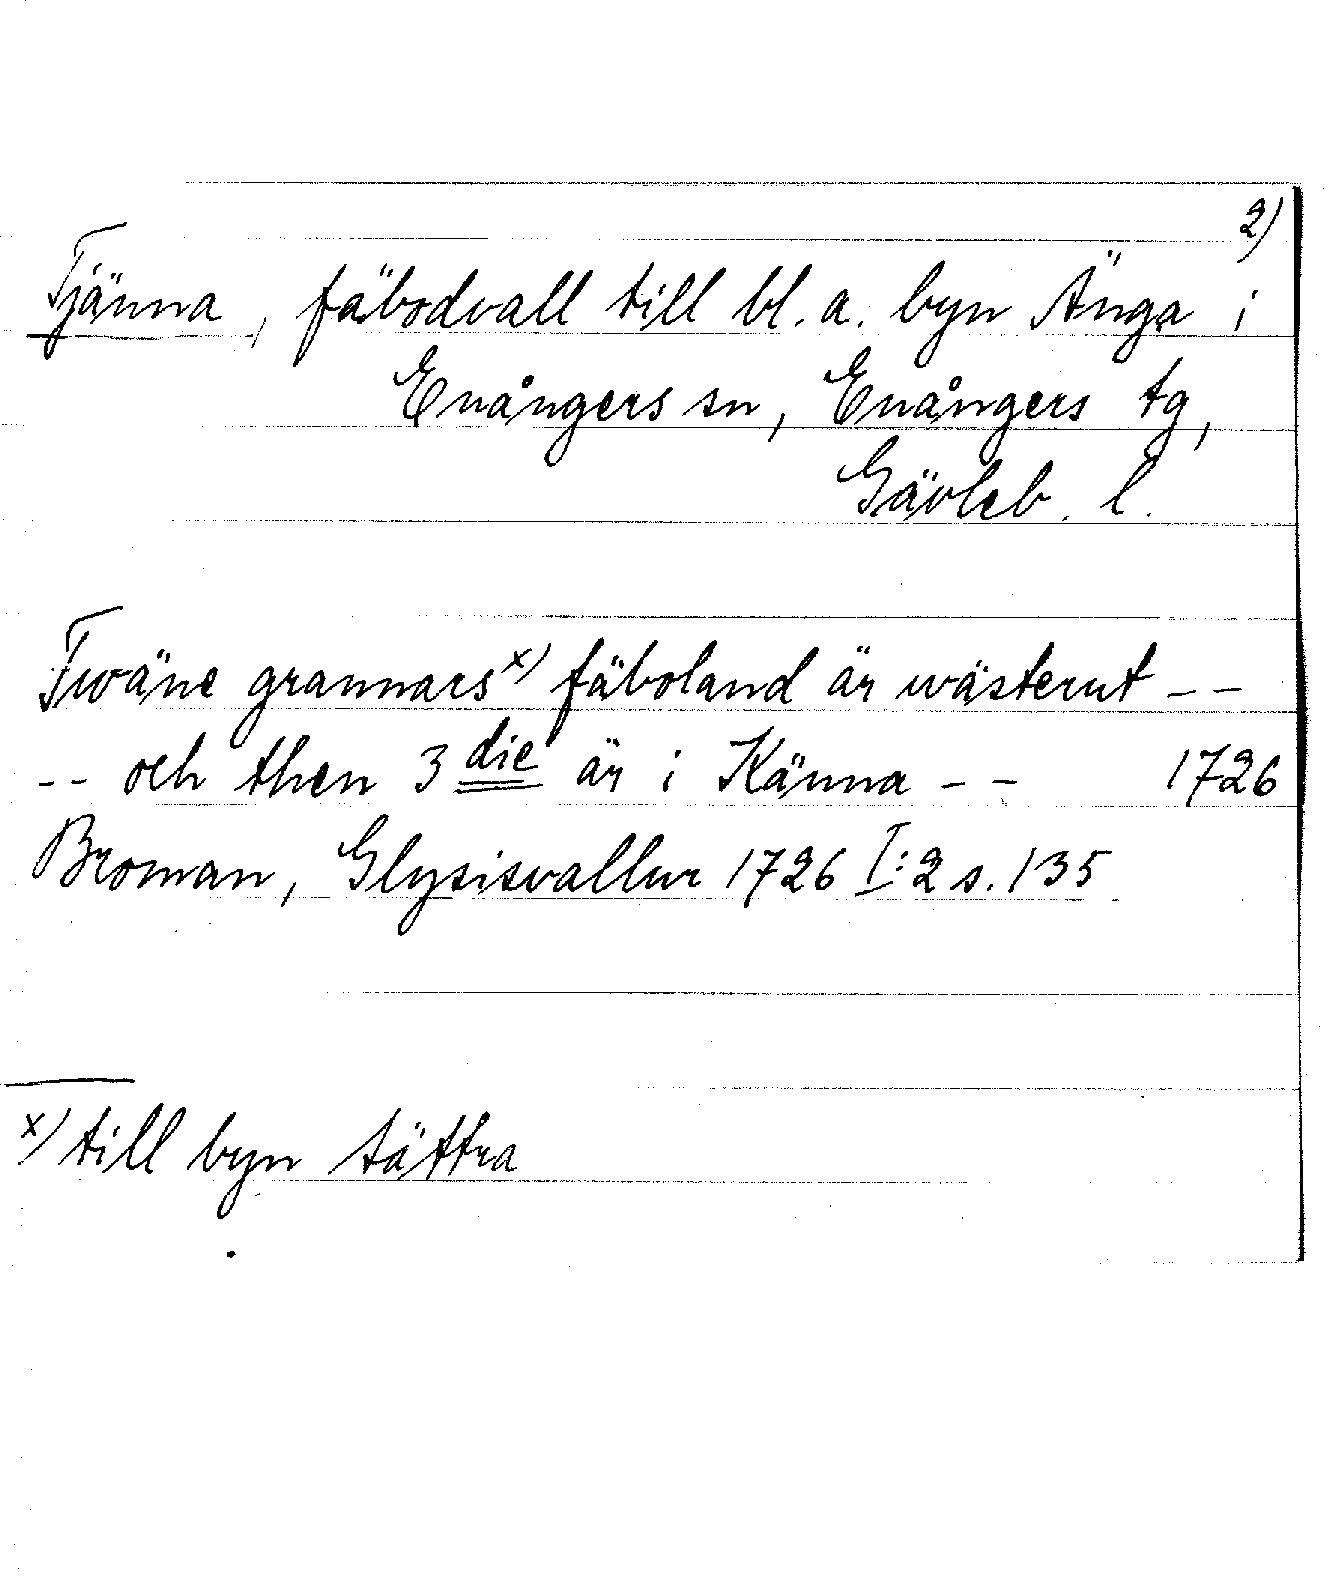 2)
Tjänna, fäbodvall till bl. a. byn Änga i
Enångers sn, Enångers tg,
Gävleb. l.
Twäne grannars x) fäboland är wästerut --
-- och then 3 die är i Känna -- 1726
Broman, Glysisvallur 1726 I:2 s. 135
x) till byn tättra